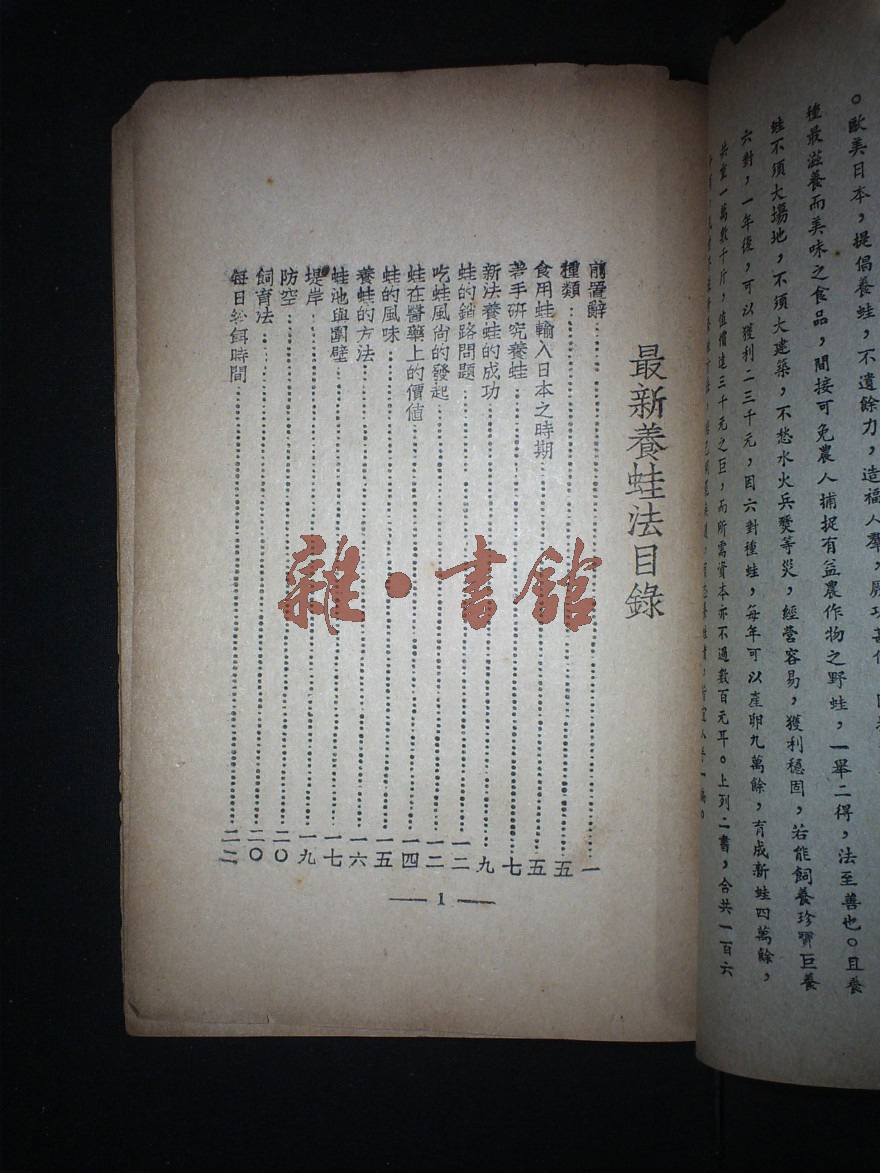 。歐美日本，提倡養蛙，不遺餘力，造福人羣，厥功甚
種最滋養而美味之食品，間接可免農人捕捉有益農作物之野蛙，一舉二得，法至善也。且養
蛙不須大場地，不須大建築，不愁水火兵燹等災，經營容易，獲利穩固，若能飼養珍寶巨養
六對，一年後，可以獲利二三千元，因六對種蛙，每年可以產卵九萬餘，育成新蛙四萬餘，
共重一萬數千斤，值價達三千元之巨，而所需資本亦不過數百元耳。上列二書，合共一百六
最新養蛙法目錄
前置辭……一
種類……五
食用蛙輸入日本之時期……五
著手研究養蛙……七
新法養蛙的成功……九
蛙的銷路問題……一二
吃蛙風尚的發起……一二
蛙在醫藥上的價值……一四
蛙的風味……一五
養蛙的方法……一六
蛙池與圍壁……一七
堤岸……一九
防空……二〇
飼育法……二〇
每日給餌時間……二二
— 1 —
雜·書館